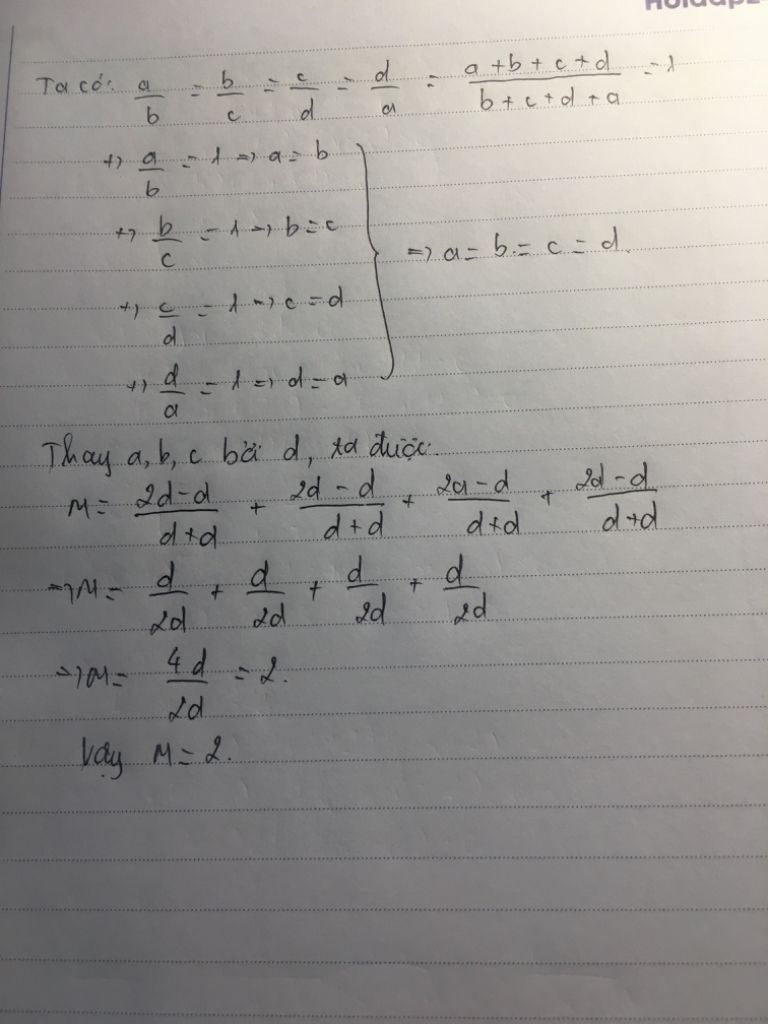 Ta có: a/b = b/c = c/d = d/a = (a+b+c+d)/(b+c+d+a) = 1
+) a/b = 1 => a = b
+) b/c = 1 => b = c
=> a = b = c = d.
+) c/d = 1 => c = d
+) d/a = 1 => d = a
Thay a, b, c bởi d, ta được:
M = (2d-d)/(d+d) + (2d-d)/(d+d) + (2a-d)/(d+d) + (2d-d)/(d+d)
=> M = d/2d + d/2d + d/2d + d/2d
=> M = 4d/2d = 2.
Vậy M = 2.